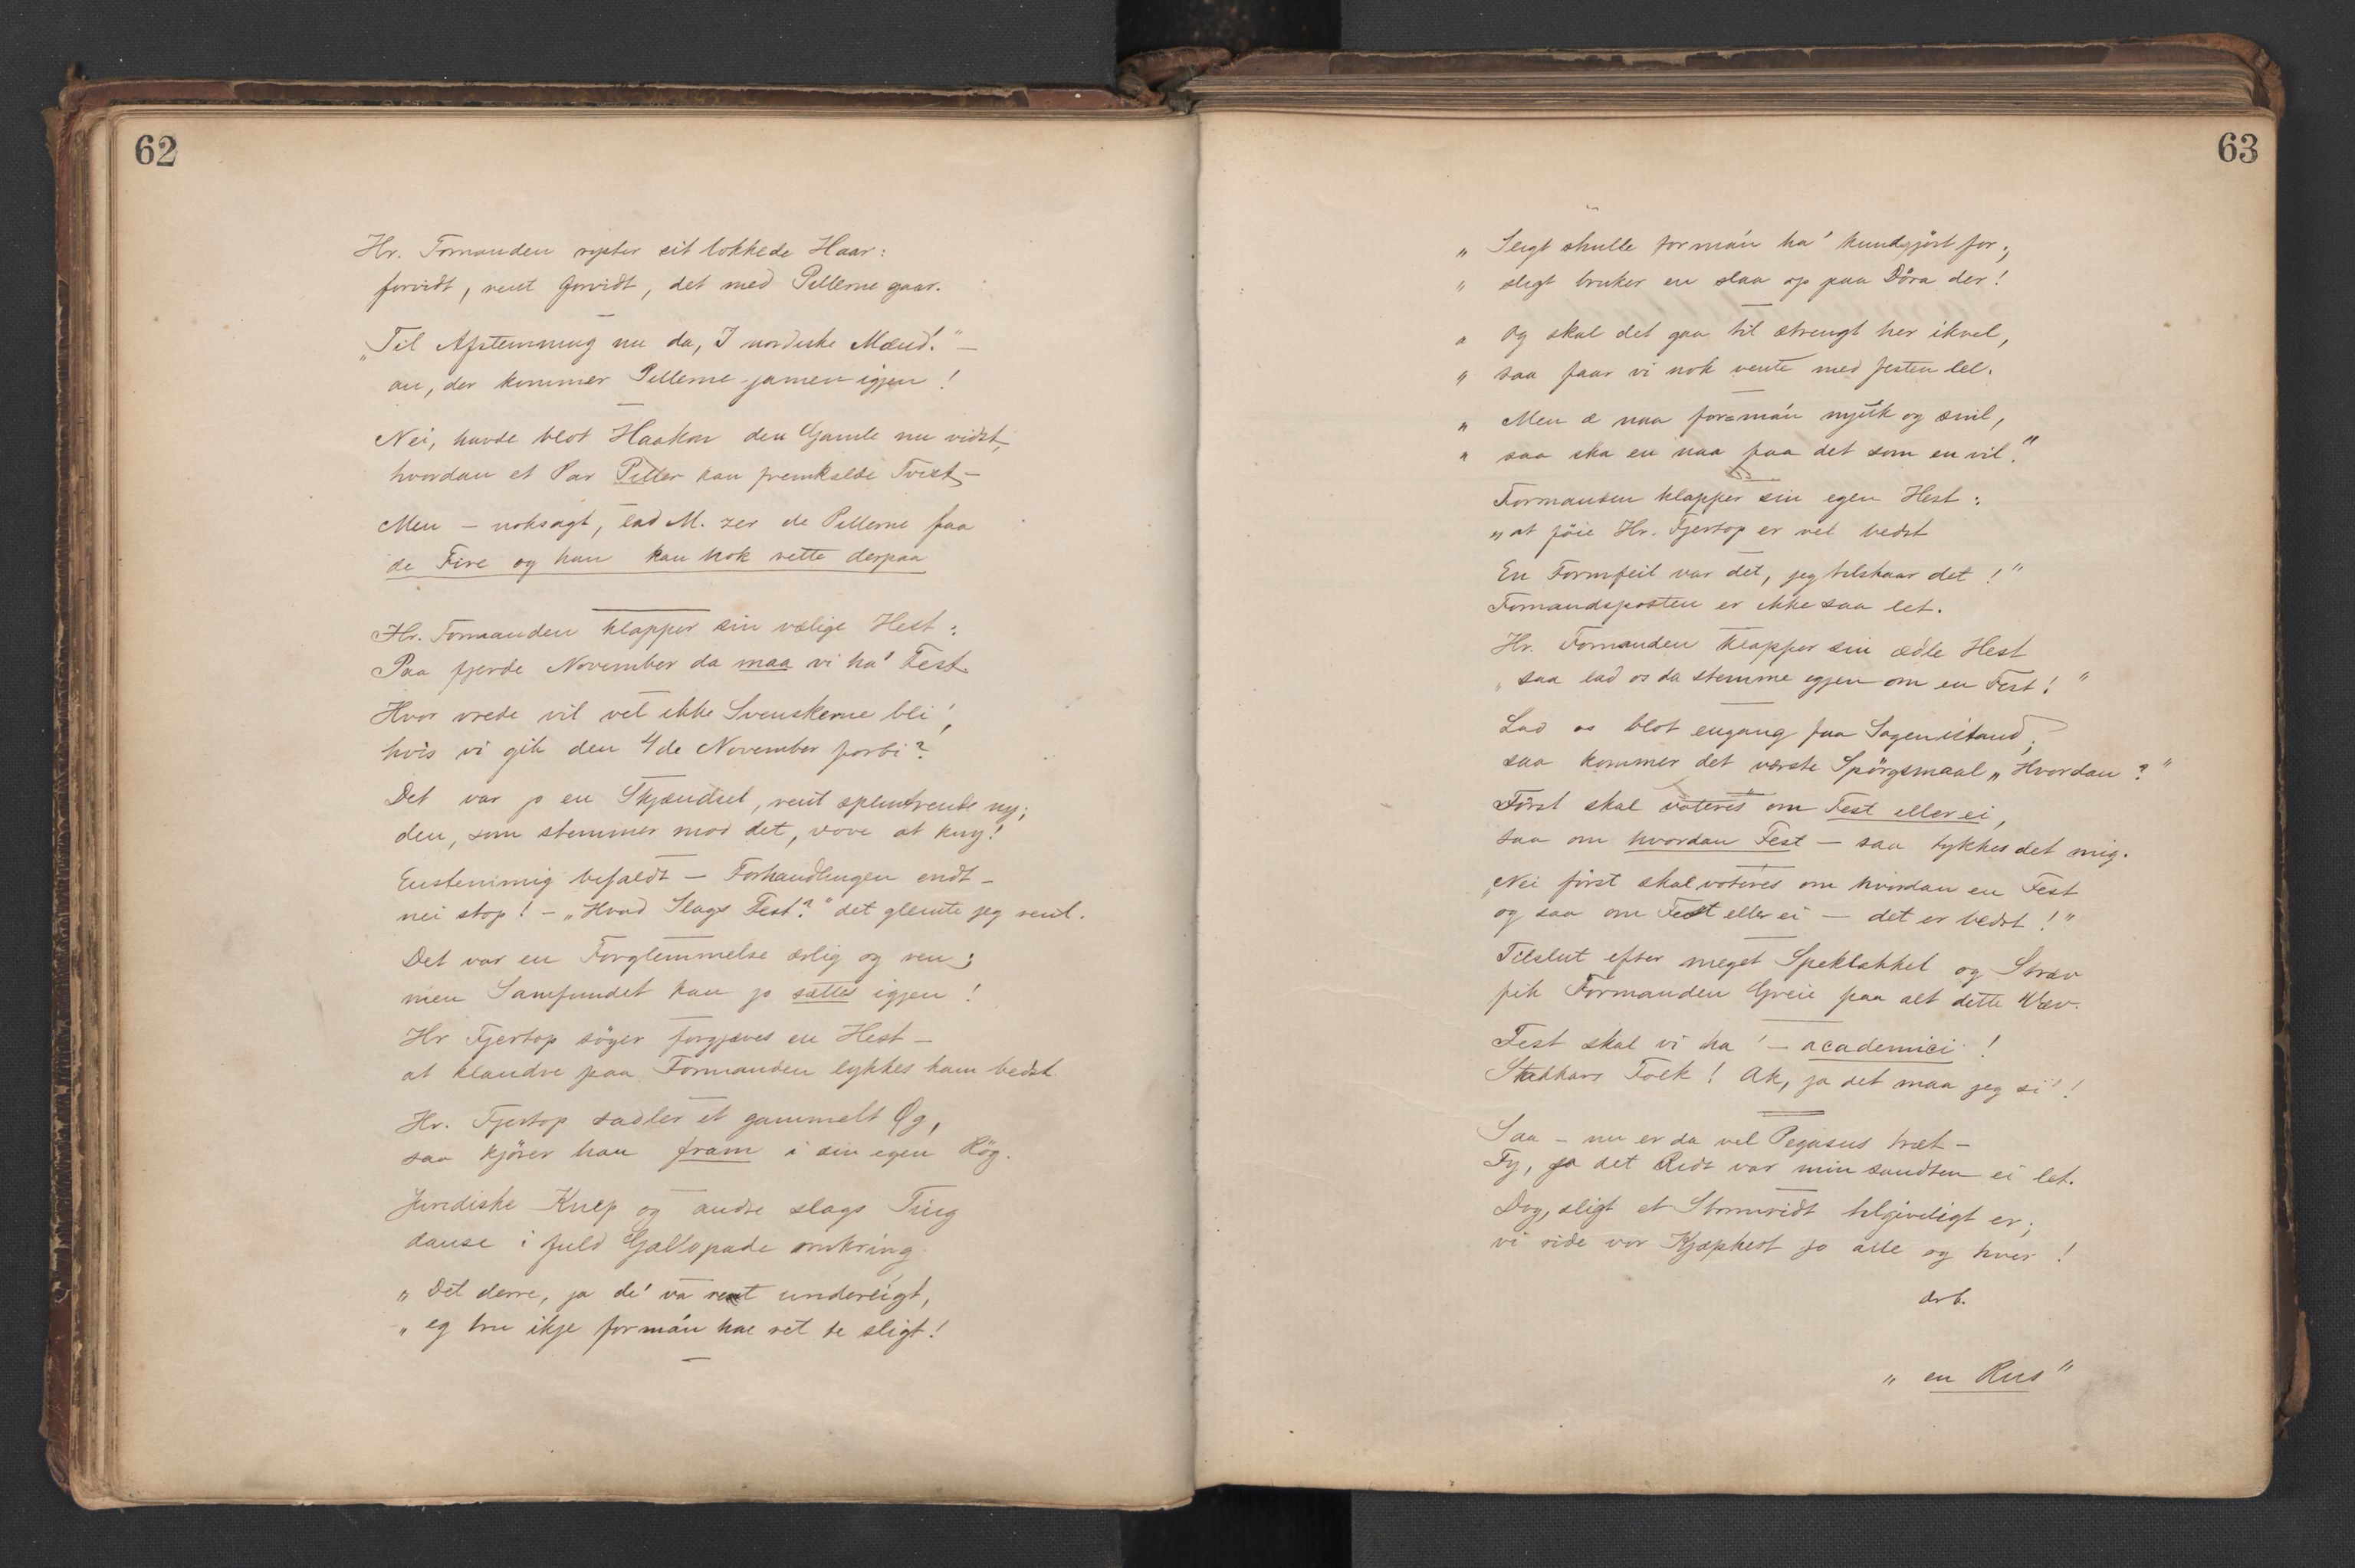 62
Hr. Formanden ryster sit lokkede Haar:
forvidt, rent forvidt, det med Pillerne gaar.
"Til Afstemning nu da, I nordiske Mænd!" —
au, der kommer Pillerne jamen igjen!
Nei, havde blot Haakon den Gamle nu vidst,
hvordan et Par Piller kan fremkalde Tvist —
Men — noksagt, lad M. zer de Pillerne faa
de Fire og han kan nok rette derpaa
Hr. Formanden klapper sin vælige Hest:
Paa fjerde November da maa vi ha' Fest.
Hvor vrede vil vel ikke Svenskerne bli',
hvis vi gik den 4de November forbi?
Det var jo en Skjændsel, rent splinterende ny;
den, som stemmer mod det, vove at kny!
Enstemmig befaldt — Forhandlingen endt —
nei stop! — "Hvad Slags Fest?" det glemte jeg rent.
Det var en Forglemmelse ærlig og ren;
men Samfundet kan jo sættes igjen!
Hr Fjertop söger forgjæves en Hest —
at klandre paa Formanden lykkes ham bedst.
Hr. Fjertop sadler et gammelt Øg,
saa kjörer han fram i sin egen Røg.
Juridiske Knep og andre slags Ting
danse i fuld Gallopade omkring.
"Det derre, ja de' va rent underligt,
"eg tru ikje formán har ret te sligt!
63
"Sligt skulle formán ha' kundgjört for;
"sligt bruker en slaa op paa Döra der!
"Og skal det gaa til strengt her ikvel,
"saa faar vi nok vente med festen lel.
"Men æ naa for=mán mjuk og snil,
"saa ska en naa faa det som en vil."
Formanden klapper sin egen Hest:
"at föie Hr. Fjertop er vel bedst
En Formfeil var det, jeg tilstaar det!"
Formandsposten er ikke saa let.
Hr. Formanden klapper sin ædle Hest
"saa lad os da stemme igjen om en Fest!"
Lad os blot engang faa Sagen istand;
saa kommer det værste Spörgsmaal "Hvordan?"
Först skal voteres om Fest eller ei,
saa om hvordan Fest — saa tykkes det mig.
"Nei först skal voteres om hvordan en Fest
og saa om Fest eller ei — det er bedst!"
Tilslut efter meget Spektakkel og Stræv
fik Formanden Greie paa alt dette Væv.
Fest skal vi ha' — academici!
Stakkars Folk! Ak, ja det maa jeg si'!
Saa — nu er da vel Pegasus træt —
Fy, ja det Ridt var min sandten ei let.
Dog, sligt et Stormridt tilgiveligt er;
vi ride vor Kjæphest jo alle og hver!
ærb.
"en Rus"